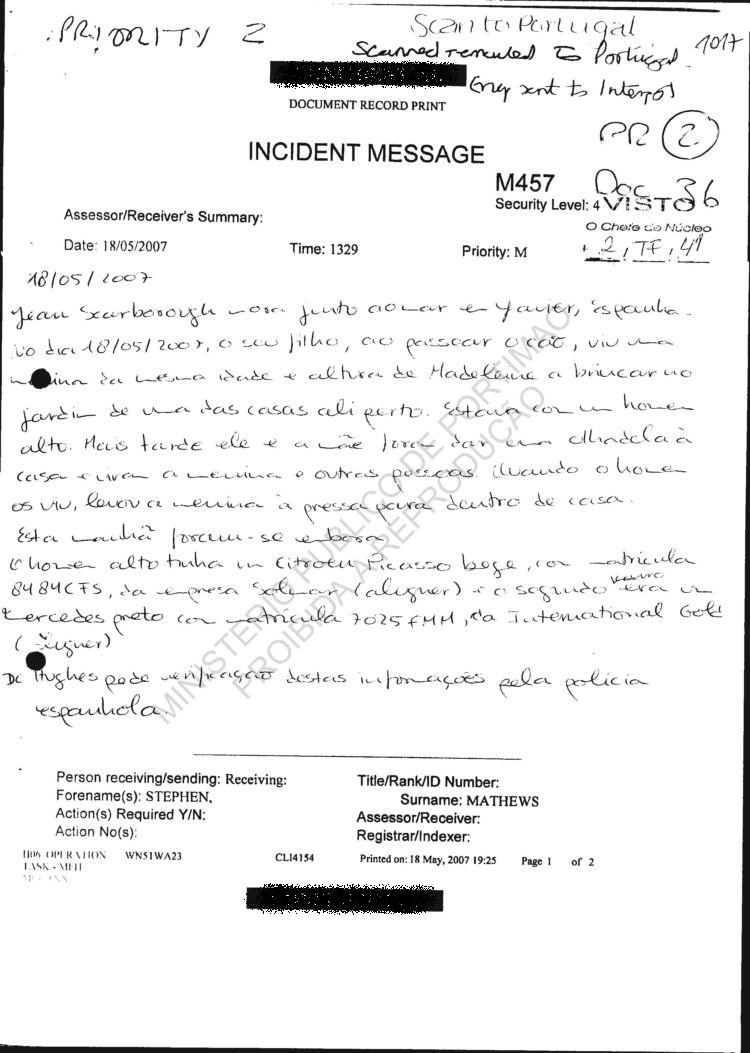 PRIORITY 2
Scan to Portugal
Scanned + emailed to Portugal 1017
Enq sent to Interpol
DOCUMENT RECORD PRINT
PR 2
INCIDENT MESSAGE
M457 Doc 36
Security Level: 4 VISTO
O Chefe do Núcleo
Assessor/Receiver's Summary:
Date: 18/05/2007 Time: 1329 Priority: M
18/05/2007
Jean Scarborough mora junto ao mar em Yavier, Espanha.
No dia 18/05/2007, o seu filho, ao passear o cão, viu uma
menina da mesma idade e altura de Madeleine a brincar no
jardim de uma das casas ali perto. Estava com um homem
alto. Mais tarde ele e a mãe foram dar uma olhadela à
casa e viram a menina e outras pessoas. Quando o homem
os viu, levou a menina à pressa para dentro de casa.
Esta manhã foram-se embora
O homem alto tinha um Citroen Picasso bege, com matrícula
8484CFS, da empresa (aluguer) e o segundo era um
Mercedes preto com matrícula 7025FMM, da International Gold
(aluguer)
DC Hughes pede verificação destas informações pela polícia
espanhola.
MINISTÉRIO PÚBLICO DE PORTIMÃO
PROIBIDA A REPRODUÇÃO
Person receiving/sending: Receiving: Title/Rank/ID Number:
Forename(s): STEPHEN, Surname: MATHEWS
Action(s) Required Y/N: Assessor/Receiver:
Action No(s): Registrar/Indexer:
H06 OPERATION WN51WA23 CLI4154 Printed on: 18 May, 2007 19:25 Page 1 of 2
TASK - METI